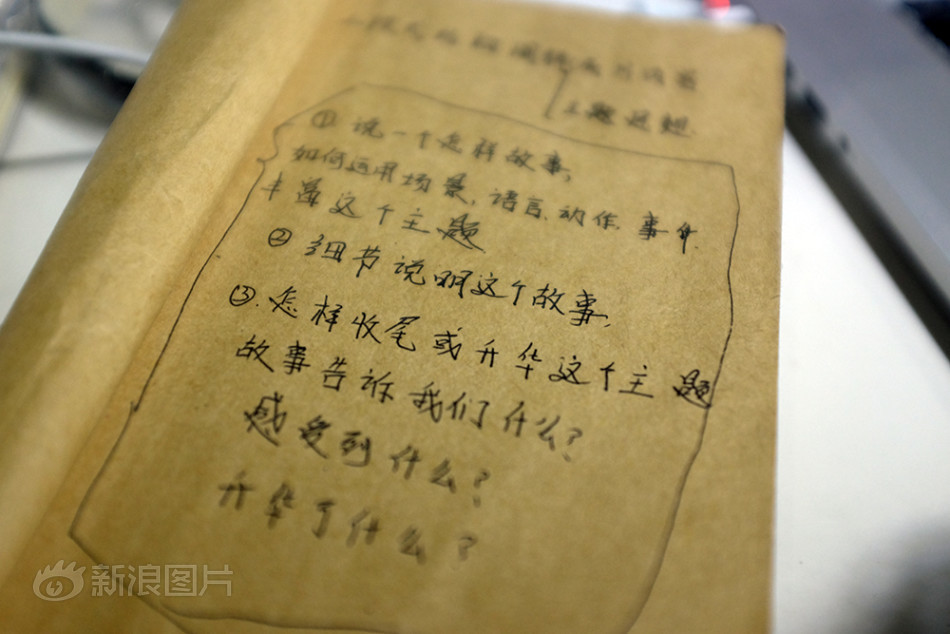 主题
① 说一个怎样故事,
如何运用场景、语言、动作、事件
丰富这个主题
② 细节说明这个故事,
③. 怎样收尾或升华这个主题
故事告诉我们什么?
感受到什么?
升华了什么?
新浪图片